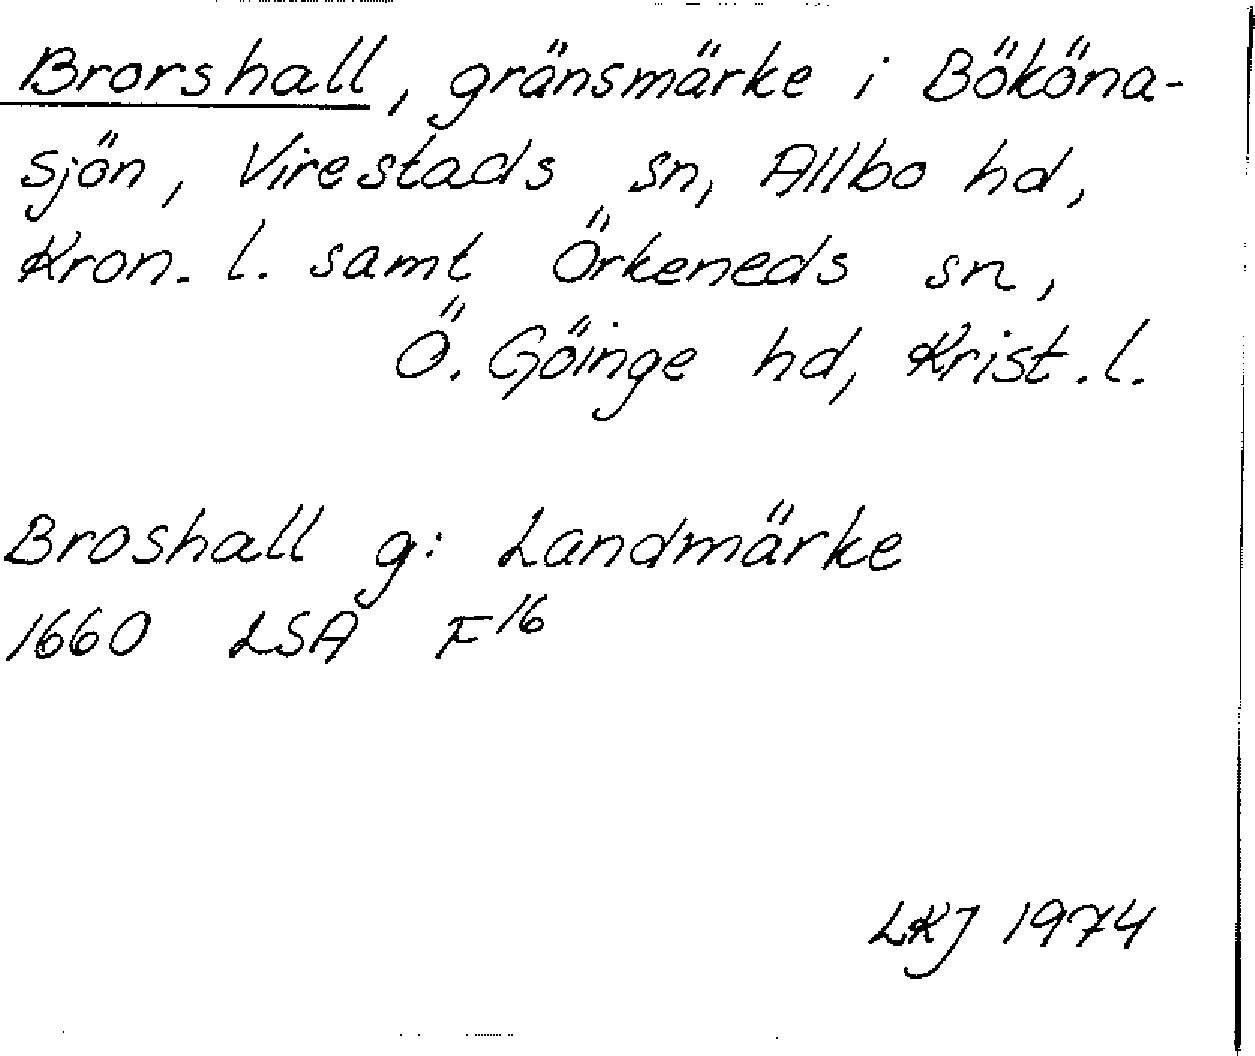 Brorshall, gränsmärke i Bököna-
sjön, Virestads sn, Allbo hd,
Kron. l. samt Örkeneds sn,
Ö. Göinge hd, Krist. l.
Broshall g: Landmärke
1660 LSA F 16
LKJ 1974